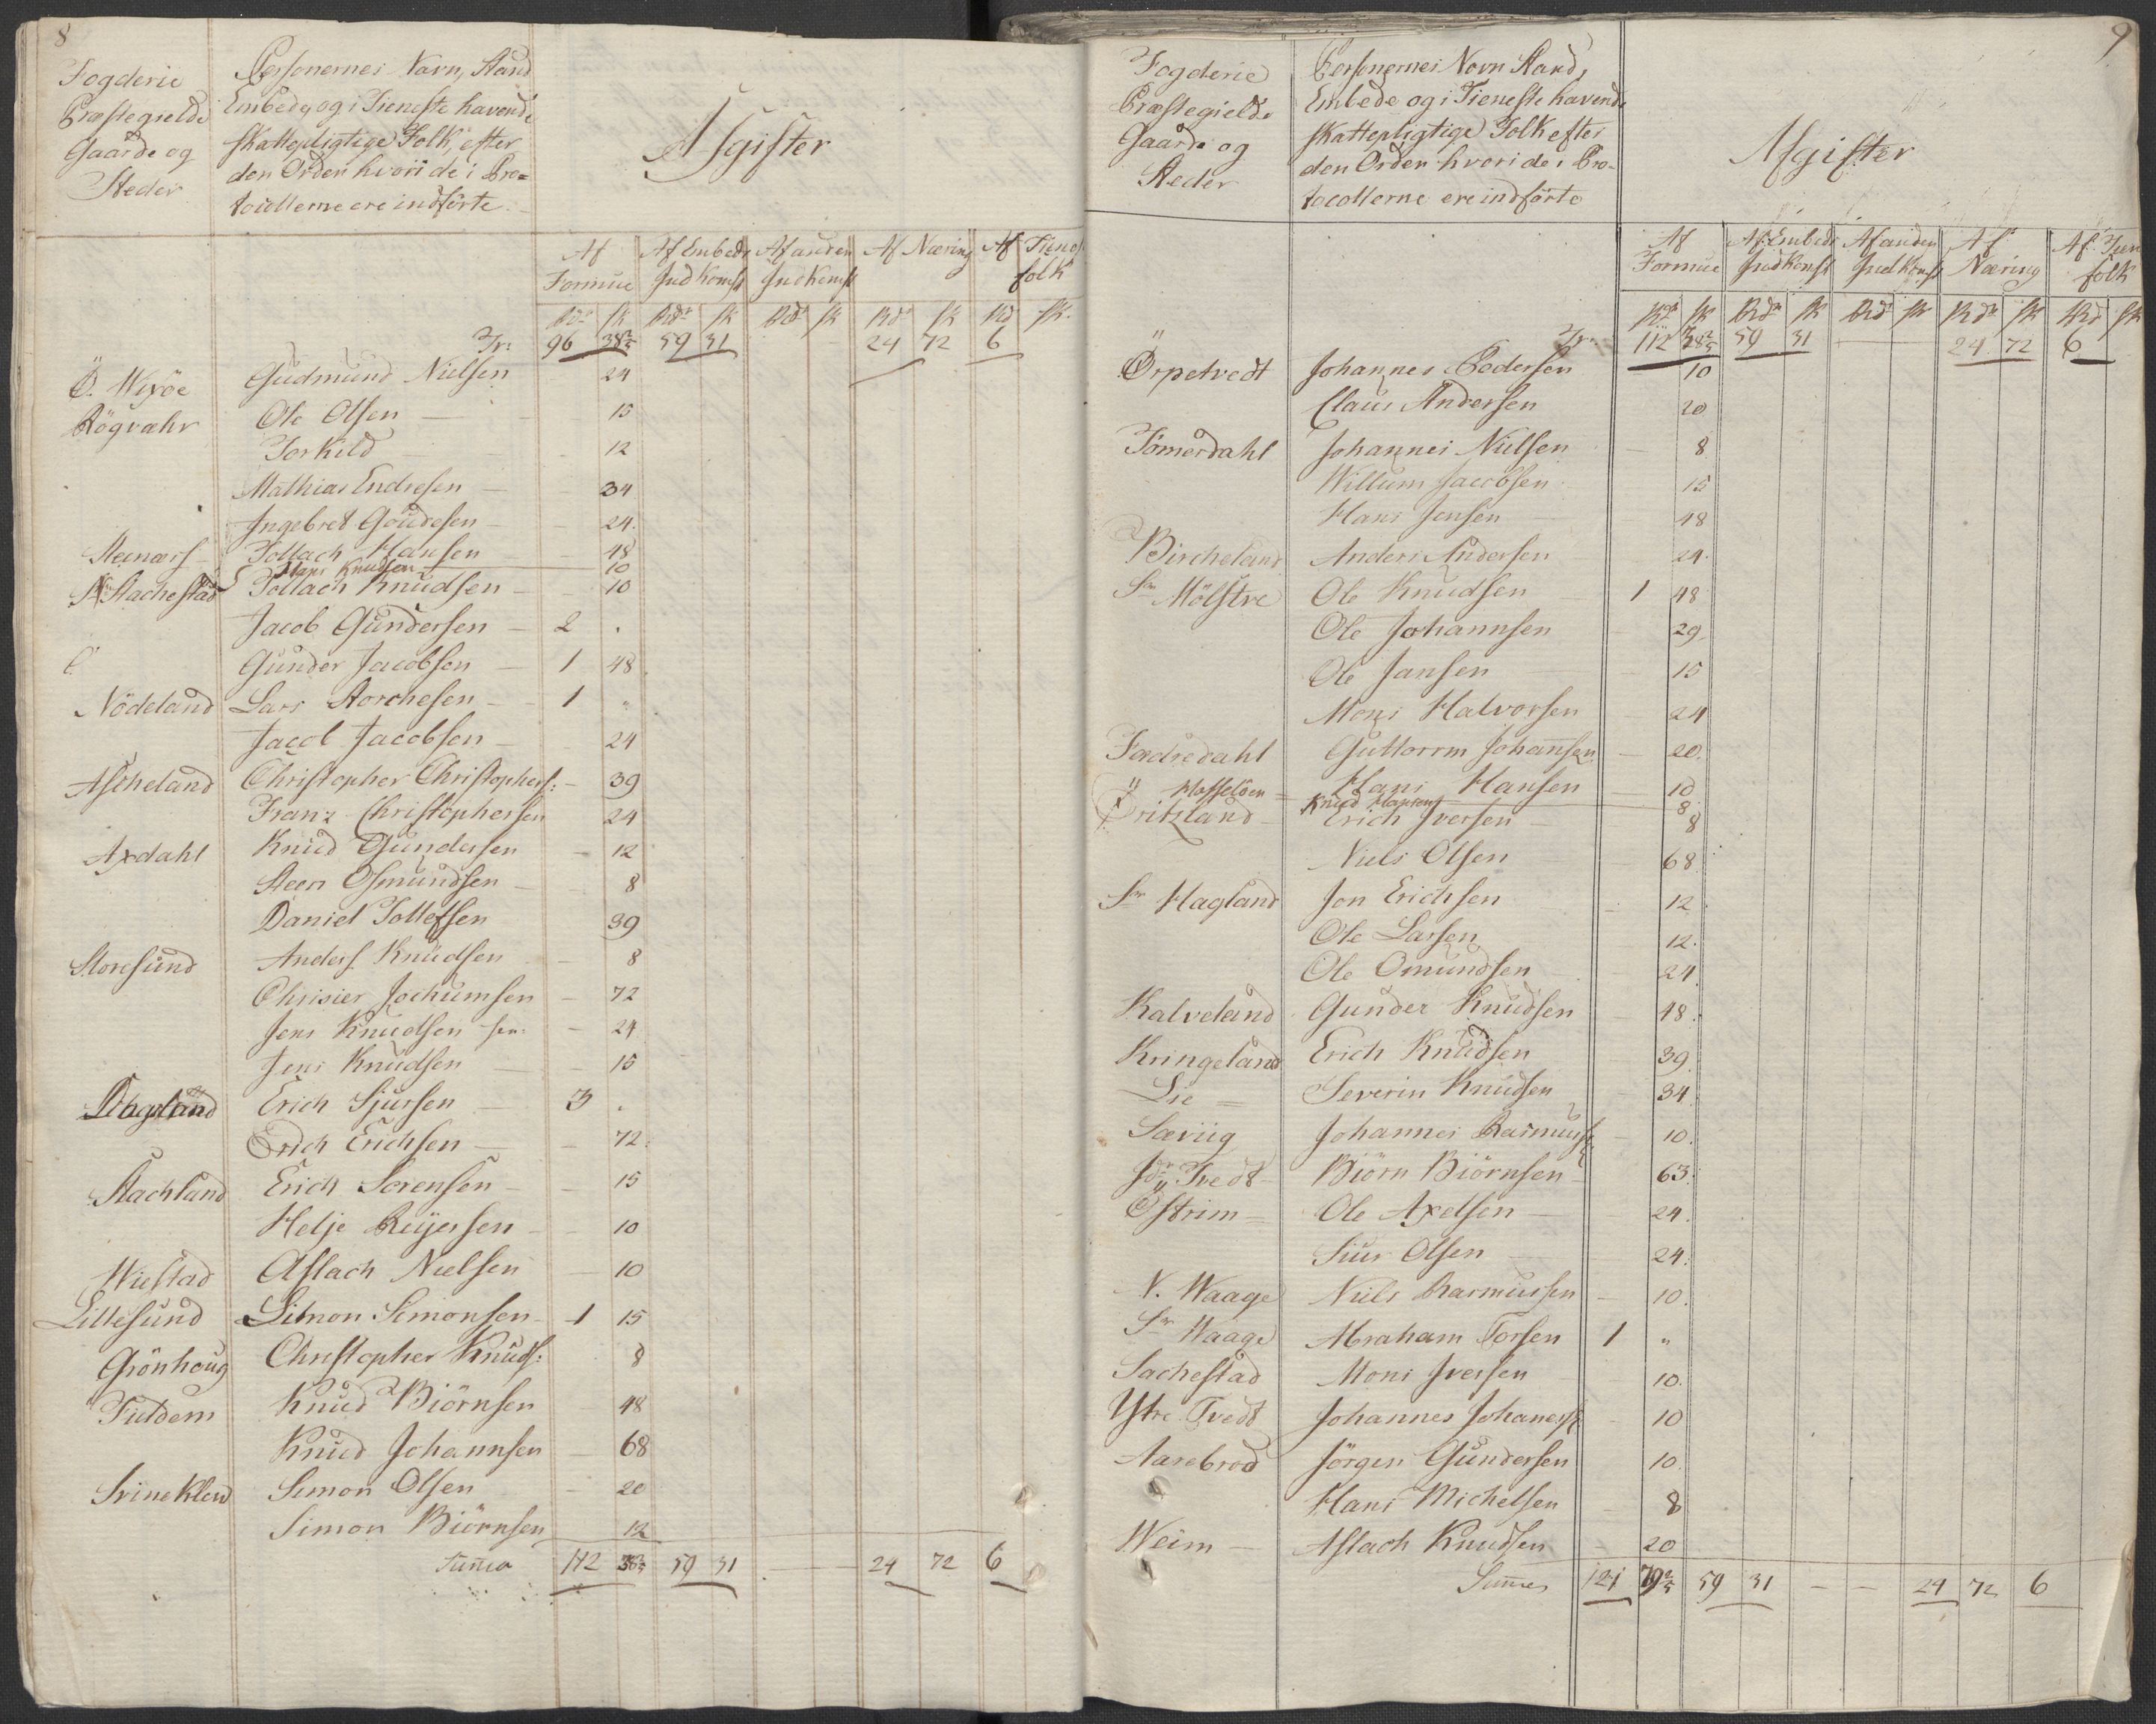 8
Fogderie
Præstegield
Gaarde og
Steder
Personernes Navn, Stand
Embede, og i Tieneste havende
skattepligtige Folk, efter
den Orden hvori de i Pro-
tocollerne ere indförte
Afgifter
Af Formue Af Embeds Indkomst Af anden Indkomst Af Næring Af Tienestfolk
Rdr sk Rdr sk Rdr sk Rdr sk Rd sk
Tr: 96 38⅖ 59 31 24 72 6
Ö. Wixöe Gudmund Nielsen 24
Rögvæhr Ole Olsen 15
Torkild 12
Mathias Endresen 34
Ingebret Goudesen 24
Steenarf Tollach Hansen 48
Hans Knudsen 10
Stachestad Tollach Knudsen 10
Jacob Gundersen 2 .
Gunder Jacobsen 1 48
Nödeland Lars Storchesen 1 "
Jacob Jacobsen 24
Ascheland Christopher Christophers: 39
Franz Christophersen 24
Axdahl Knud Gundersen 12
Steen Osmundsen 8
Daniel Tollefsen 39
Storesund Anders Knudsen 8
Chrisier Jochumsen 72
Jens Knudsen sen: 24
Jens Knudsen 15
Hagland Erich Sjursen 3 .
Erich Erichsen 72
Stachland Erich Sorensen 15
Helje Reijersen 10
Wiestad Aslach Nielsen 10
Lillesund Simon Simonsen 1 15
Grönhoug Christopher Knuds: 8
Fieldem Knud Biörnsen 48
Knud Johannsen 68
Svineklew Simon Olsen 20
Simon Biörnsen 12
Summa 112 38⅖ 59 31 24 72 6
9
Fogderie
Præstegield
Gaarde og
Steder
Personernes Navn Stand,
Embede og i Tieneste havende
skattepligtige Folk efter
den Orden hvori de i Pro-
tocollerne ere indförte
Afgifter
Af Formue Af Embeds Indkomst Af anden Indkomst Af Næring Af Tien folk
Rdr sk Rdr sk Rdr sk Rdr sk Rd sk
Tr: 112 38⅖ 59 31 24 72 6
Örpetvedt Johannes Pedersen 10
Claus Andersen 20
Tömerdahl Johannes Nielsen 8
Willum Jacobsen 15
Hans Jensen 48
Bircheland Anders Andersen 24
Sr Mölstre Ole Knudsen 1 48
Ole Johannsen 29
Ole Jansen 15
Mons Halvorsen 24
Fædredahl Guttorm Johannsen 20
Hasselöen Hans Hansen 10
Knud Hansen 8
Öritzland Erich Iversen 8
Niels Olsen 68
Sr Hagland Jon Erichsen 12
Ole Larsen 12
Ole Omundsen 24
Kalveland Gunder Knudsen 48
Kringeland Erich Knudsen 39
Lie Severin Knudsen 34
Sæviig Johannes Rasmuss: 10
Idr Tvedt Biörn Biörnsen 63
Östrim Ole Axelsen 24
Siur Olsen 24
N. Waage Niels Rasmussen 10
Sr Waage Abraham Torsen 1 "
Sachestad Mons Iversen 10
Ytre Tvedt Johannes Johaness: 10
Aarebrod Jörgen Gundersen 10
Hans Michelsen 8
Weim Aslach Knudsen 20
Summa 121 79⅖ 59 31 24 72 6